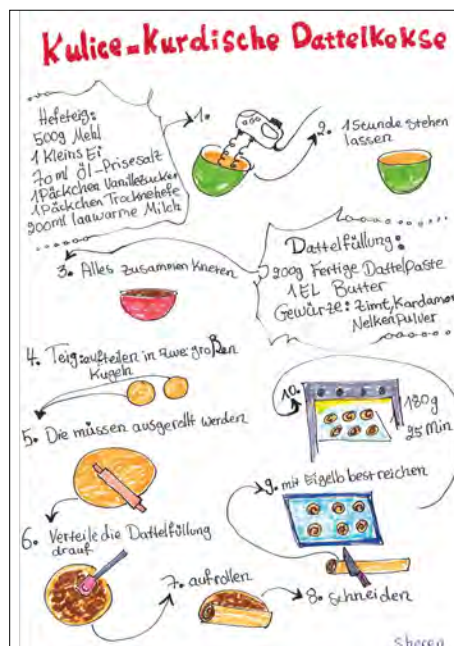 Kulice=Kurdische Dattelkekse
Hefeteig:
500g Mehl
1 Kleins Ei
70ml Öl-Prisesalz
1Päckchen Vanillezucker
1Päckchen Trocknehefe
200ml lauwarme Milch
1.
2. 1 Stunde stehen
lassen
Dattelfüllung:
900g Fertige Dattelpaste
1EL Butter
Gewürze: Zimt, Kardamom
Nelkenpulver
3. Alles zusammen Kneten
4. Teig:aufteilen in zwei großen
Kugeln
5. Die müssen ausgerollt werden
6. Verteile die Dattelfüllung
drauf
7. aufrollen
8. schneiden
9. mit Eigelb bestreichen
10.
180g
25 Min